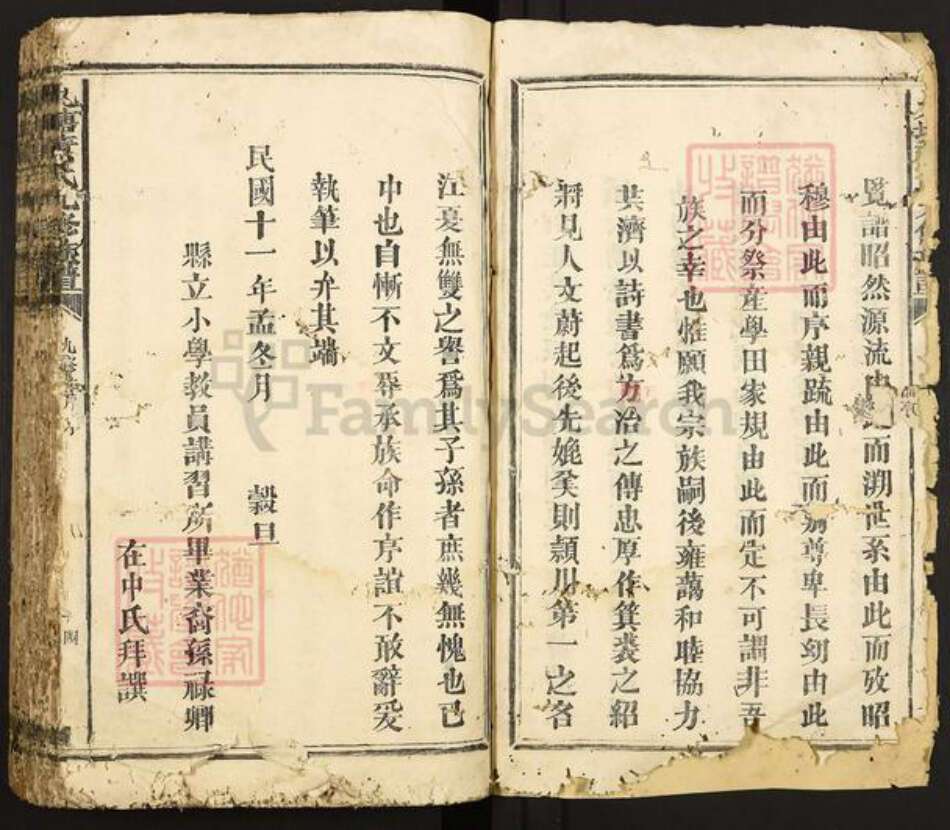 覽譜昭然源流由此而溯世系由此而攷昭
穆由此而序親疏由此而別尊卑長幼由此
而分祭產學田家規由此而定不可謂非吾
族之幸也惟願我宗族嗣後雍藹和睦協力
共濟以詩書為方冶之傳忠厚作箕裘之紹
將見人文蔚起後先媲美則潁川第一之名
江夏無雙之譽爲其子孫者庶幾無愧也已
中也自慚不文辱承族命作序誼不敢辭爰
執筆以弁其端
民國十一年孟冬月 穀旦
縣立小學教員講習所畢業裔孫祿卿
在中氏拜譔
氏九修
FamilySearch